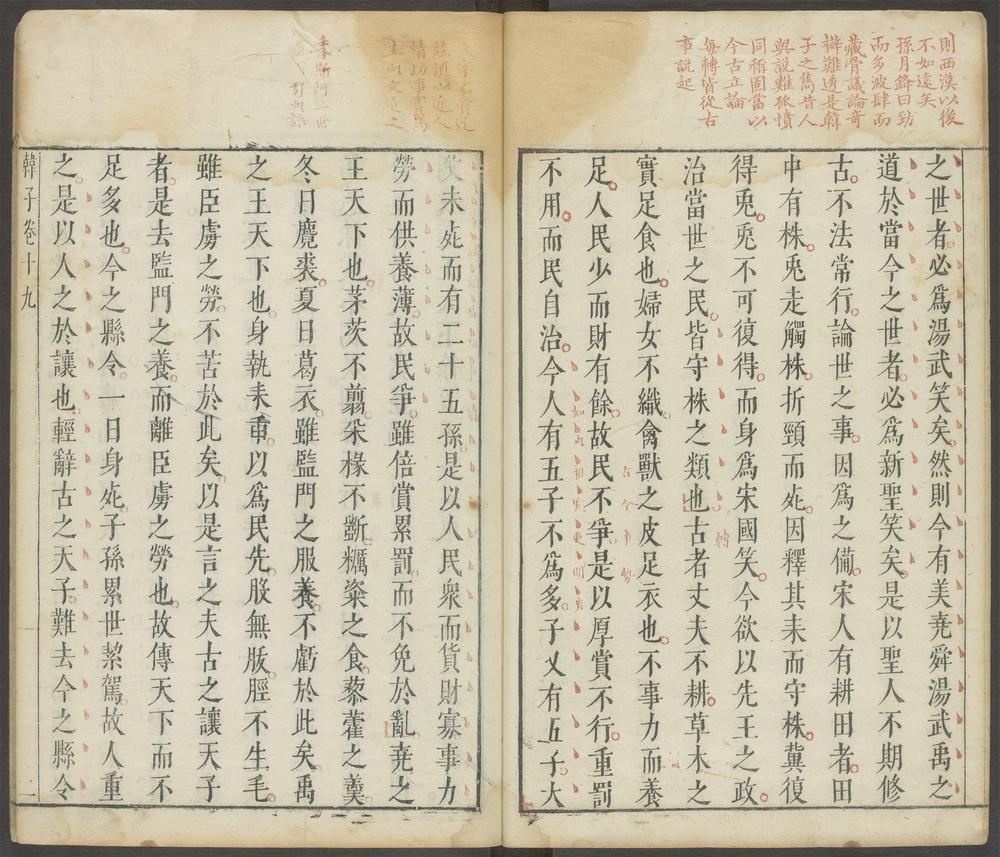 則西漢以後
不如遠矣
孫月鋒曰勁
而多波肆而
藏骨議論奇
辯難透是韓
子之雋昔人
與說難孤憤
同稱固當以
今古立論
每轉皆從古
事說起
之世者必爲湯武笑矣然則今有美堯舜湯武禹之
道於當今之世者必爲新聖笑矣是以聖人不期修
古不法常行論世之事因爲之備宋人有耕田者田
中有株兎走觸株折頸而死因釋其耒而守株冀復
得兎兎不可復得而身爲宋國笑今欲以先王之政
轉
治當世之民皆守株之類也古者丈夫不耕草木之
實足食也婦女不織禽獸之皮足衣也不事力而養
古今事勢
足人民少而財有餘故民不爭是以厚賞不行重罰
如此相更明
不用而民自治今人有五子不爲多子又有五子大
李斯阿二世
父未死而有二十五孫是以人民衆而貨財寡事力
勞而供養薄故民爭雖倍賞累罰而不免於亂堯之
王天下也茅茨不翦采椽不斲糲粢之食藜藿之羹
冬日麑裘夏日葛衣雖監門之服養不虧於此矣禹
之王天下也身執耒臿以爲民先股無胈脛不生毛
雖臣虜之勞不苦於此矣以是言之夫古之讓天子
者是去監門之養而離臣虜之勞也故傳天下而不
足多也今之縣令一日身死子孫累世絜駕故人重
之是以人之於讓也輕辭古之天子難去今之縣令
韓子卷十九 二